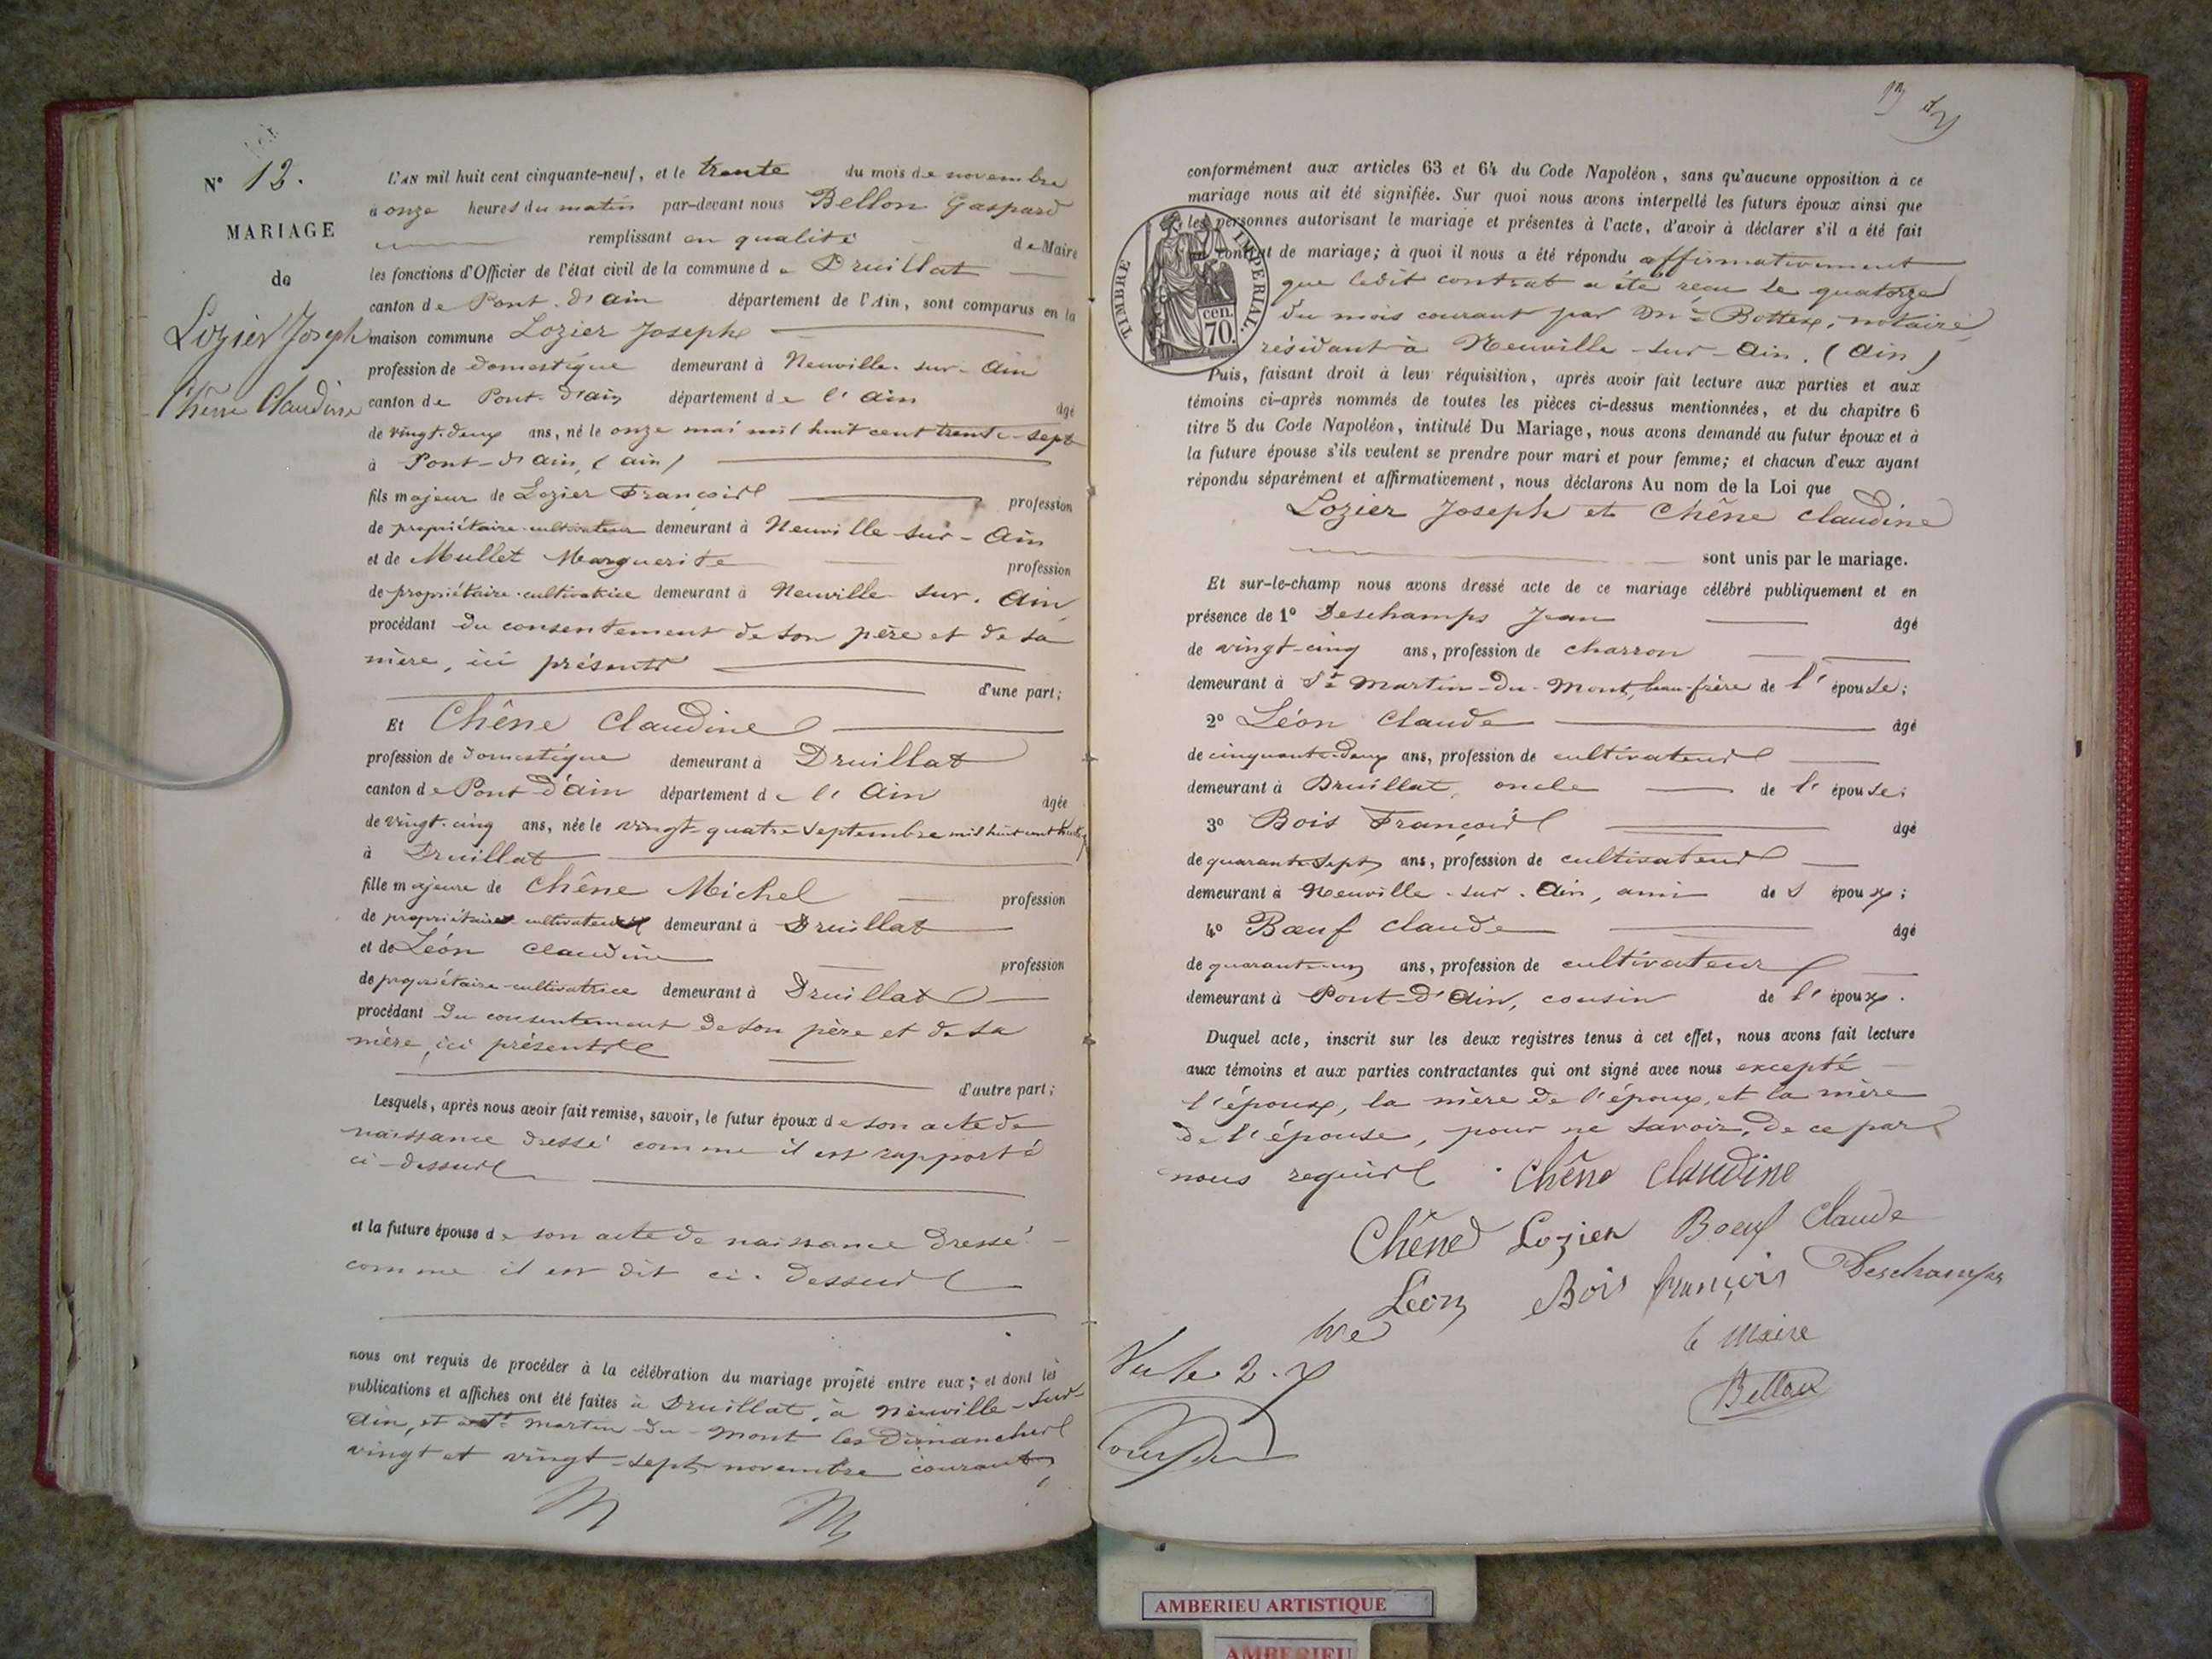 N° 12.
MARIAGE
de
Lozier Joseph
Chêne Claudine
L'AN mil huit cent cinquante-neuf, et le trente du mois de novembre
à onze heures du matin par-devant nous Bellon Gaspard
remplissant en qualité de Maire
les fonctions d'Officier de l'état civil de la commune de Druillat
canton de Pont-d'ain département de l'Ain, sont comparus en la
maison commune Lozier Joseph
profession de domestique demeurant à Neuville-sur-Ain
canton de Pont-d'ain département de l'Ain âgé
de vingt-deux ans, né le onze mai mil huit cent trente-sept
à Pont-d'Ain, (ain)
fils majeur de Lozier François profession
de propriétaire-cultivateur demeurant à Neuville-sur-Ain
et de Mullet Marguerite profession
de propriétaire-cultivatrice demeurant à Neuville-sur-Ain
procédant du consentement de son père et de sa
mère, ici présents
d'une part;
Et Chêne Claudine
profession de domestique demeurant à Druillat
canton de Pont-d'ain département de l'Ain âgée
de vingt-cinq ans, née le vingt-quatre septembre mil huit cent
à Druillat
fille majeure de Chêne Michel profession
de propriétaire-cultivateur demeurant à Druillat
et de Léon Claudine profession
de propriétaire-cultivatrice demeurant à Druillat
procédant du consentement de son père et de sa
mère, ici présents
d'autre part;
Lesquels, après nous avoir fait remise, savoir, le futur époux de son acte de
naissance dressé comme il est rapporté
ci-dessus
et la future épouse de son acte de naissance dressé
comme il est dit ci-dessus
nous ont requis de procéder à la célébration du mariage projeté entre eux; et dont les
publications et affiches ont été faites à Druillat, à Neuville-sur-
Ain, et à St Martin-du-Mont les dimanches
vingt et vingt-sept novembre courant
conformément aux articles 63 et 64 du Code Napoléon, sans qu'aucune opposition à ce
mariage nous ait été signifiée. Sur quoi nous avons interpellé les futurs époux ainsi que
les personnes autorisant le mariage et présentes à l'acte, d'avoir à déclarer s'il a été fait
contrat de mariage; à quoi il nous a été répondu affirmativement
que ledit contrat a été reçu le quatorze
du mois courant par Me Bottex, notaire
résidant à Neuville-sur-Ain. (Ain)
TIMBRE IMPERIAL.
cen.
70.
Puis, faisant droit à leur réquisition, après avoir fait lecture aux parties et aux
témoins ci-après nommés de toutes les pièces ci-dessus mentionnées, et du chapitre 6
titre 5 du Code Napoléon, intitulé Du Mariage, nous avons demandé au futur époux et à
la future épouse s'ils veulent se prendre pour mari et pour femme; et chacun d'eux ayant
répondu séparément et affirmativement, nous déclarons Au nom de la Loi que
Lozier Joseph et Chêne Claudine
sont unis par le mariage.
Et sur-le-champ nous avons dressé acte de ce mariage célébré publiquement et en
présence de 1° Deschamps Jean âgé
de vingt-cinq ans, profession de charron
demeurant à St Martin-du-Mont, beau-frère de l'épouse;
2° Léon Claude âgé
de cinquante-deux ans, profession de cultivateur
demeurant à Druillat, oncle de l'épouse;
3° Bois François âgé
de quarante-sept ans, profession de cultivateur
demeurant à Neuville-sur-Ain, ami de l'époux;
4° Bœuf Claude âgé
de quarante-un ans, profession de cultivateur
demeurant à Pont-d'Ain, cousin de l'époux.
Duquel acte, inscrit sur les deux registres tenus à cet effet, nous avons fait lecture
aux témoins et aux parties contractantes qui ont signé avec nous excepté
l'époux, la mère de l'époux, et la mère
de l'épouse, pour ne savoir, de ce par
nous requis Chêne Claudine
Chêne Lozier Boeuf Claude
Léon Bois françois Deschamps
le Maire
Bellon
AMBERIEU ARTISTIQUE
AMBERIEU